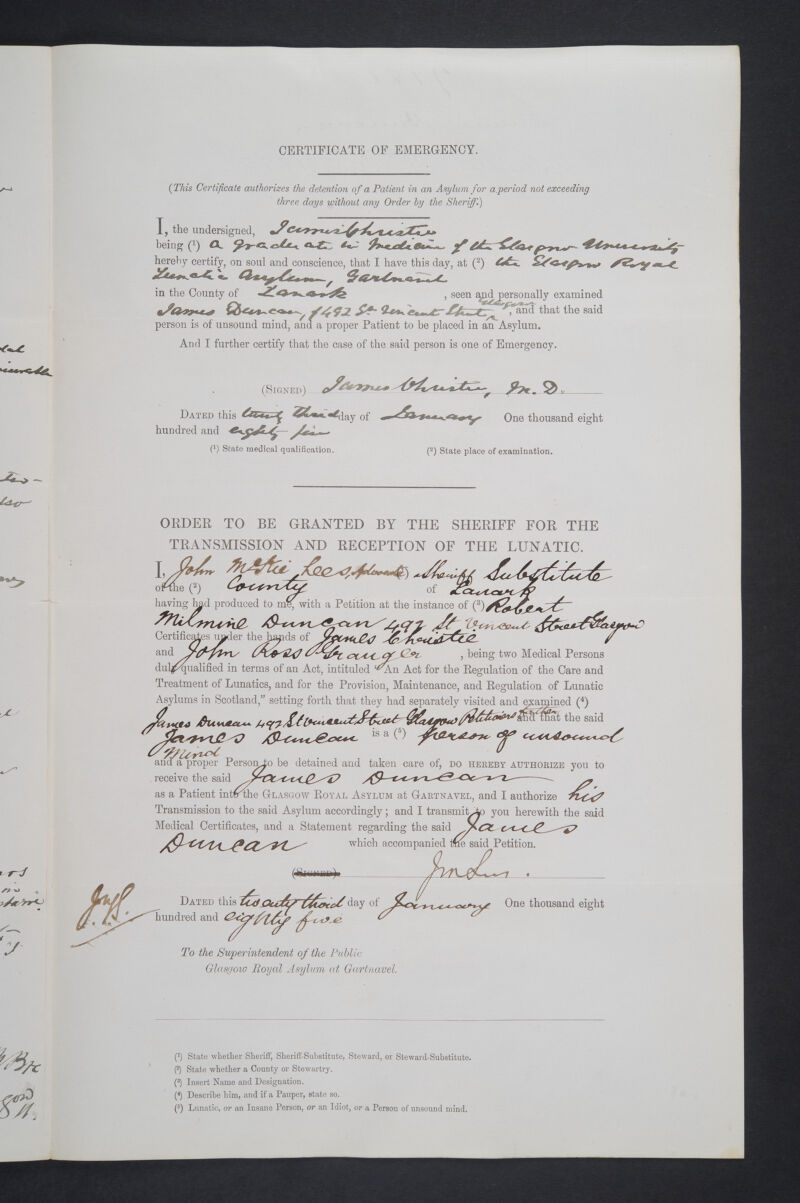 CERTIFICATE OF EMERGENCY.
(This Certificate authorizes the detention of a Patient in an Asylum for a period not exceeding
three days without any Order by the Sheriff.)
I, the undersigned, James Christie
being (1) a graduate in Medicine of the Glasgow University
hereby certify, on soul and conscience, that I have this day, at (2) the Glasgow Royal
Lunatic Asylum, Gartnavel
in the County of Lanark , seen and personally examined
James Duncan, of 492 St Vincent Street, Glasgow, and that the said
person is of unsound mind, and a proper Patient to be placed in an Asylum.
And I further certify that the case of the said person is one of Emergency.
(SIGNED) James Christie, M.D.
DATED this twenty third day of January One thousand eight
hundred and eighty five
(1) State medical qualification. (2) State place of examination.
ORDER TO BE GRANTED BY THE SHERIFF FOR THE
TRANSMISSION AND RECEPTION OF THE LUNATIC.
I, John McKie Lees, Advocate (1) Sheriff Substitute
of the (2) County of Lanark
having had produced to me, with a Petition at the instance of (3) Robert
Milmine Duncan 492 St Vincent Street Glasgow
Certificates under the hands of James Christie
and John Ross Granger , being two Medical Persons
duly qualified in terms of an Act, intituled "An Act for the Regulation of the Care and
Treatment of Lunatics, and for the Provision, Maintenance, and Regulation of Lunatic
Asylums in Scotland," setting forth that they had separately visited and examined (4)
James Duncan 492 St Vincent Street Glasgow Petitioners and that the said
James Duncan is a (5) person of unsound
mind
and a proper Person to be detained and taken care of, DO HEREBY AUTHORIZE you to
receive the said James Duncan
as a Patient into the GLASGOW ROYAL ASYLUM at GARTNAVEL, and I authorize his
Transmission to the said Asylum accordingly; and I transmit to you herewith the said
Medical Certificates, and a Statement regarding the said James
Duncan which accompanied the said Petition.
(SIGNED)
DATED this twenty third day of January One thousand eight
hundred and eighty five
To the Superintendent of the Public
Glasgow Royal Asylum at Gartnavel.
(1) State whether Sheriff, Sheriff-Substitute, Steward, or Steward-Substitute.
(2) State whether a County or Stewartry.
(3) Insert Name and Designation.
(4) Describe him, and if a Pauper, state so.
(5) Lunatic, or an Insane Person, or an Idiot, or a Person of unsound mind.